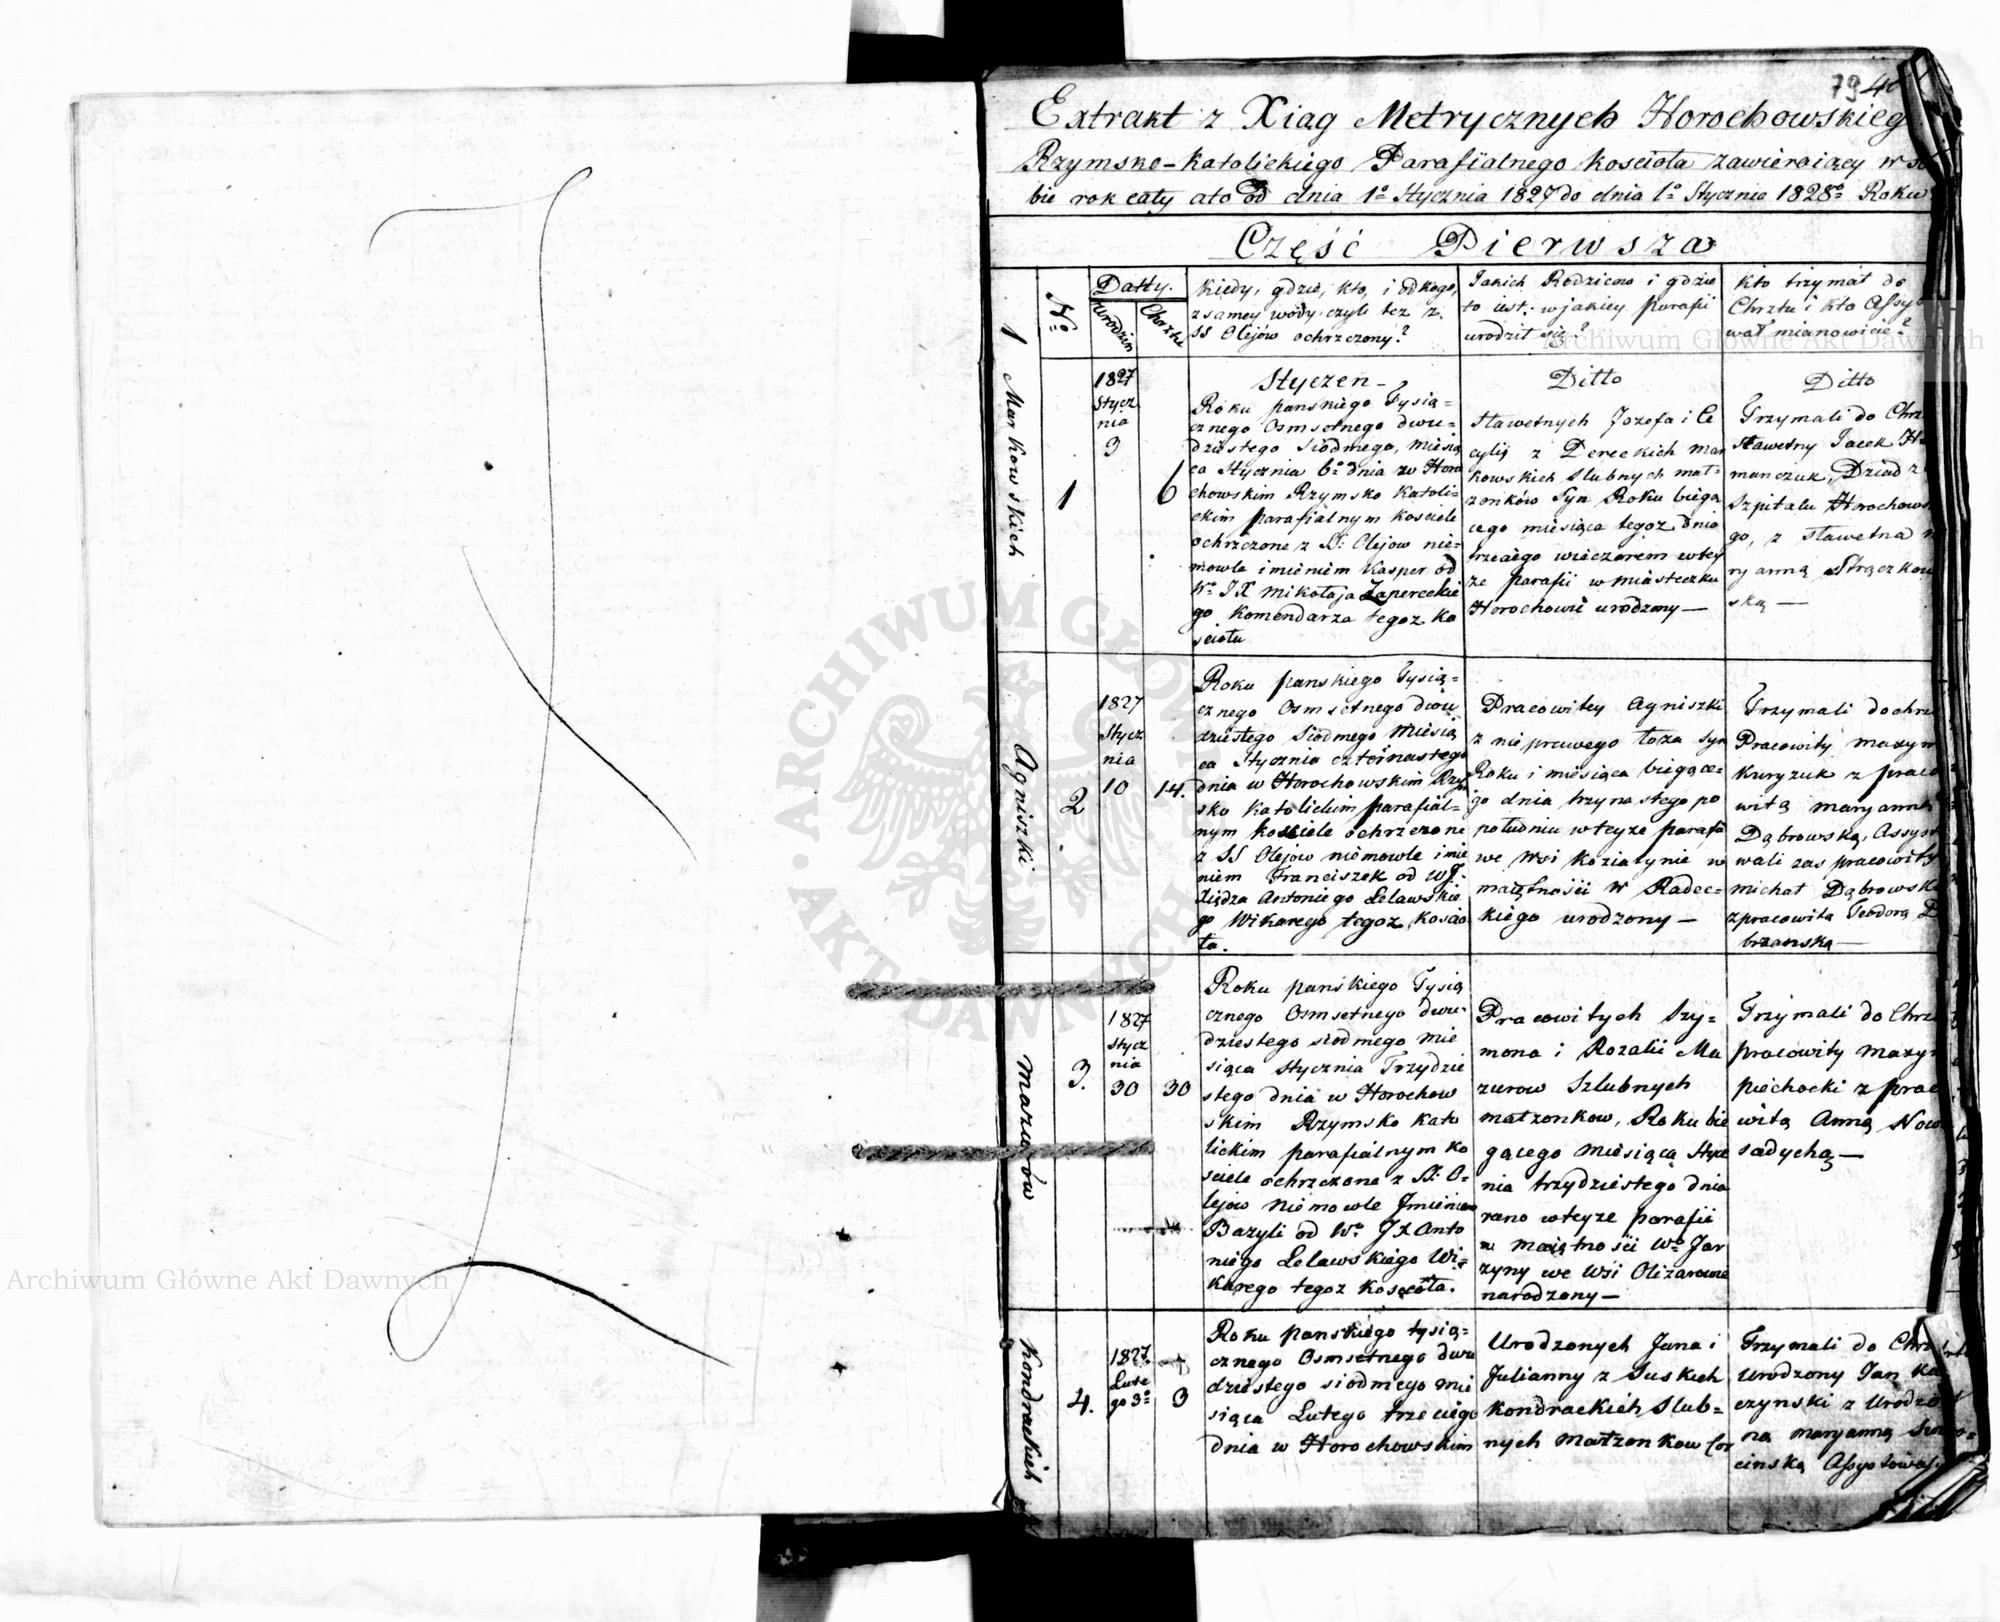 79 40
Extrakt z Xiąg Metrycznych Horochowskieg
Rzymsko-Katolickiego Parafiialnego Kościoła zawieraiący w so
bie rok cały a to od dnia 1o Stycznia 1827 do dnia 1o Stycznia 1828o Roku
Część Pierwsza
No
Datty.
Urodzin
Chrztu
Kiedy, gdzie, kto, i od kogo,
z samey wody, czyli też z
SS Olejów ochrzczony?
Jakich Rodziców i gdzie
to iest: w jakiey parafii
urodził się?
Kto trzymał do
Chrztu i kto Assys
wał mianowicie?
1 Markowskich
1
1827
Stycz
nia
3
6
Styczen-
Roku panskiego Tysią=
cznego Osmsetnego dwu-
dziestego Siódmego, miesią
ca Stycznia 6o dnia w Horo
chowskim Rzymsko Katoli-
ckim parafialnym kościele
ochrzczone z S: Olejow nie-
mowle imieniem Kasper od
Wo JX Mikołaja Zapereckie
go Komendarza tegoz Ko
scioła
Ditto
Sławetnych Jozefa i Ce
cylij z Dereckich Mar
kowskich Slubnych mał-
żonków Syn Roku biegą
cego miesiąca tegoz dnia
trzeciego wieczorem w tey
ze parafii w miasteczku
Horochowie urodzony—
Ditto
Trzymali do Chrz
Sławetny Jacek H
manczuk, Dziad z
Szpitalu Horochows
go, z sławetna
ryanną Strączkow
ską—
Agniszki
2
1827
Stycz
nia
10
14.
Roku panskiego Tysią=
cznego Osmsetnego dwu
dziestego Siódmego Miesią
ca Stycznia czternastego
dnia w Horochowskim Rzym
sko Katolickim parafial-
nym kosciele ochrzczone
z SS Olejow niemowle imie
niem Franciszek od WJ.
Xiędza Antoniego Lelawskie
go Wikarego tegoz koscio
ła.
Pracowitey Agniszki
z nieprawego łoża Syn
Roku i miesiąca biegące-
go dnia trzynastego po
południu w teyze parafii
we Wsi Koziatynie w
maiętności W Radec-
kiego urodzony—
Trzymali do chrz
Pracowity maxym
Kuryzuk z praco
witą maryanną
Dąbrowską, Assysto
wali zas pracowity
michał Dąbrowski
z pracowitą Teodorą D
brzanską—
Mazurów
3.
1827
Stycz
nia
30
30
Roku panskiego Tysią
cznego Osmsetnego dwu-
dziestego siodmego mie
siąca Stycznia Trzydzie
stego dnia w Horochow
skim Rzymsko Kato
lickim parafialnym ko
sciele ochrzczone z S: O-
lejow Niemowle Jmieniem
Bazyli od Wo JX Anto
niego Lelawskiego Wi-
karego tegoz Koscioła.
Pracowitych Szy-
mona i Rozalii Ma
zurow Szlubnych
małzonkow, Roku bie
gącego Miesiąca Stycz
nia trzydziestego dnia
rano w teyze parafii
w maiątnosci Wo Jar
zyny we Wsi Olizarowie
narodzony—
Trzymali do Chrz
pracowity maxym
piechocki z praco
witą Anną Now
sadychą—
Kondrackich
4.
1827
Lute
go 3o
3
Roku panskiego tysią=
cznego Osmsetnego dwu
dziestego siodmego mie
siąca Lutego trzeciego
dnia w Horochowskim
Urodzonych Jana i
Julianny z Suskich
Kondrackich Slub=
nych małzonkow Cor
Trzymali do Chrz
Urodzony Jan Ka
czynski z Urodzo
ną maryanną
cinską Assystowali
Archiwum Główne Akt Dawnych
Archiwum Główne Akt Dawnych
ARCHIWUM GŁÓWNE AKT DAWNYCH